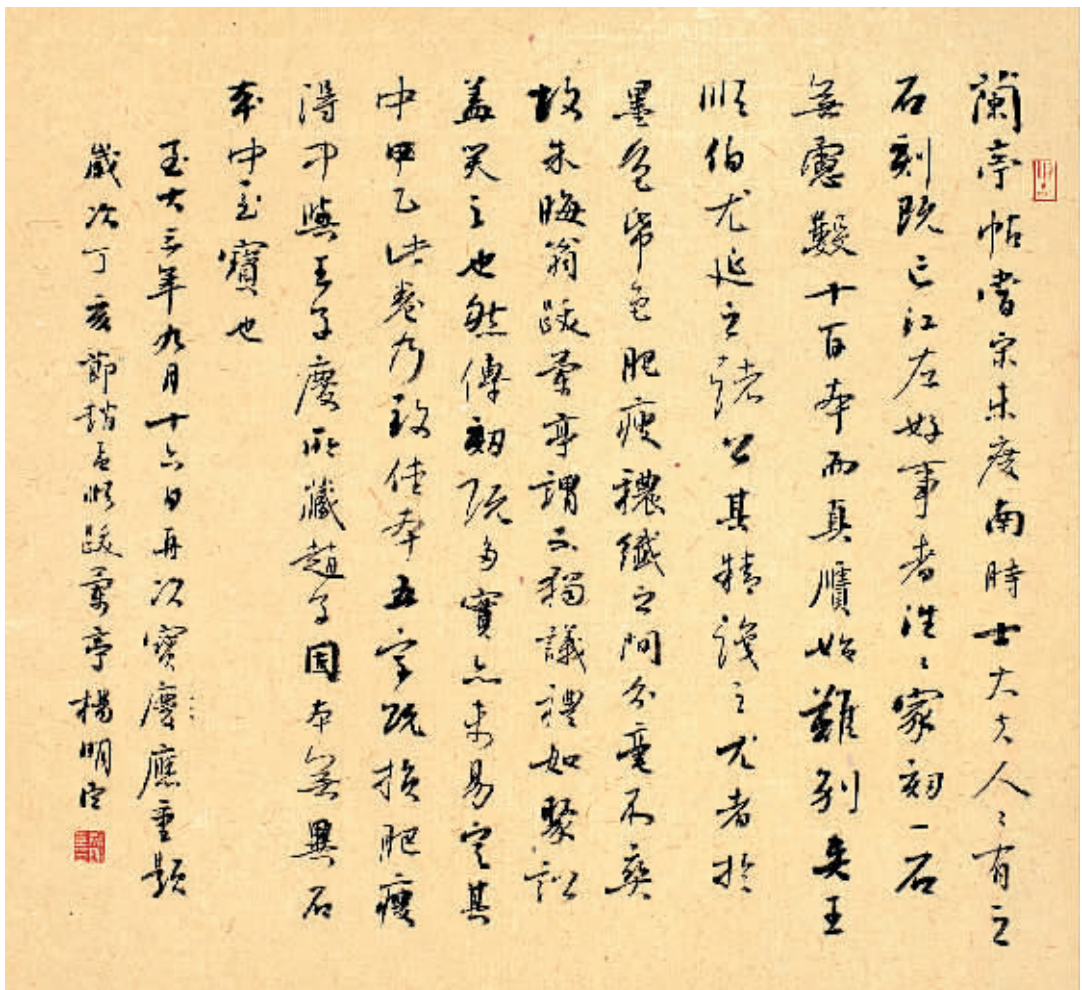 蘭亭帖當宋未度南時士大夫人人有之
石刻既亡江左好事者往往家刻一石
無慮數十百本而真贋始難別矣王
順伯尤延之諸公其精識之尤者於
墨色帋色肥瘦穠纖之間分毫不爽
故朱晦翁跋蘭亭謂不獨議禮如聚訟
蓋笑之也然傳刻既多實亦未易定其
中甲乙此卷乃致佳本五字既損肥瘦
得中與王子慶所藏趙子固本無異石
本中至寶也
至大三年九月十六日舟次寶應重題
歲次丁亥節趙孟順跋蘭亭楊明臣